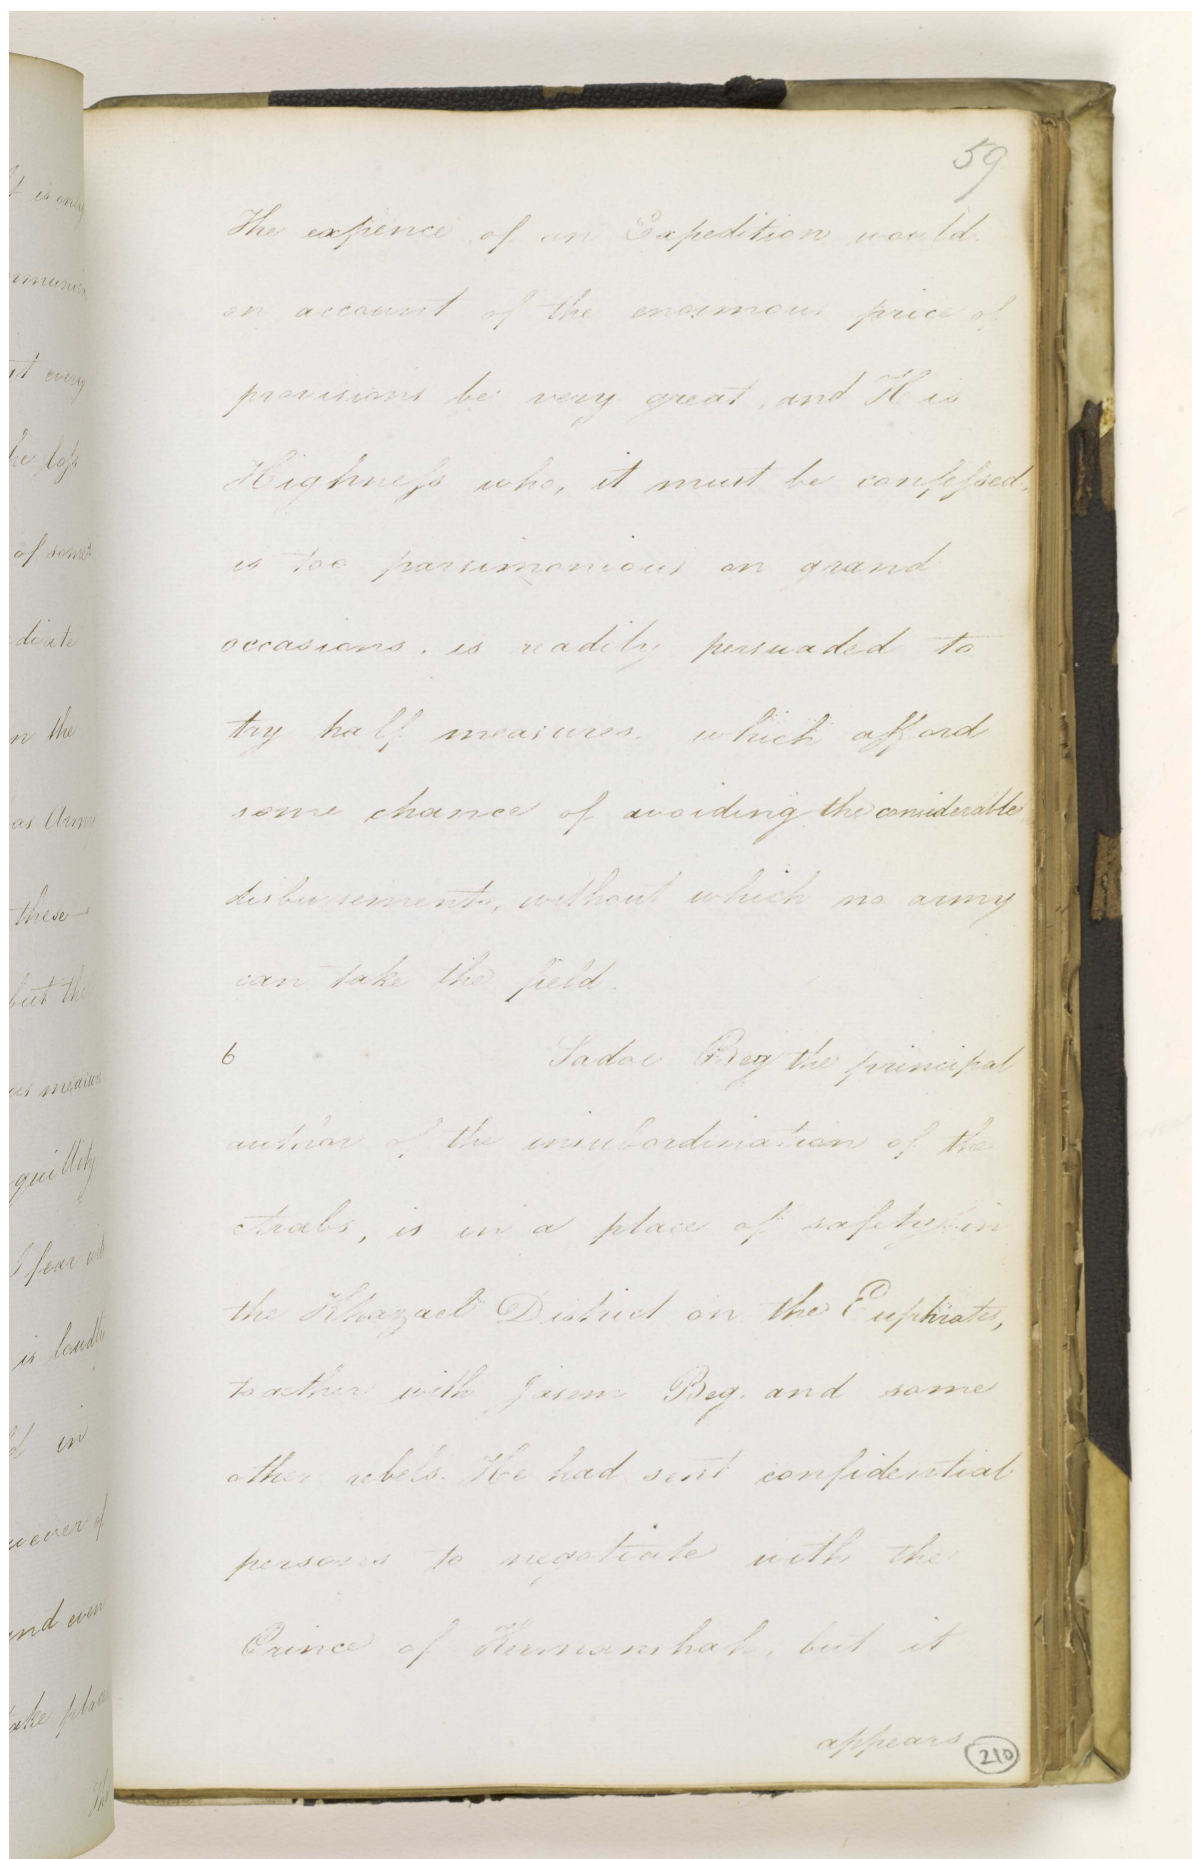 59
The expence of an Expedition would
on account of the enormous price of
provisions be very great, and His
Highness who, it must be confessed,
is too parsimonious on grand
occasions, is readily persuaded to
try half measures, which afford
some chance of avoiding the considerable
disbursements, without which no army
can take the field.
6 Sadoc Beg the principal
author of the insubordination of the
Arabs, is in a place of safety in
the Khazael District on the Euphrates,
together with Jasem Beg, and some
other rebels. He had sent confidential
persons to negotiate with the
Prince of Kermanshah, but it
appears
210
t is only
t every
he loss
of some
n the
these
but the
quillity
I fear
is loudly
in
wever of
and even
ake place
The